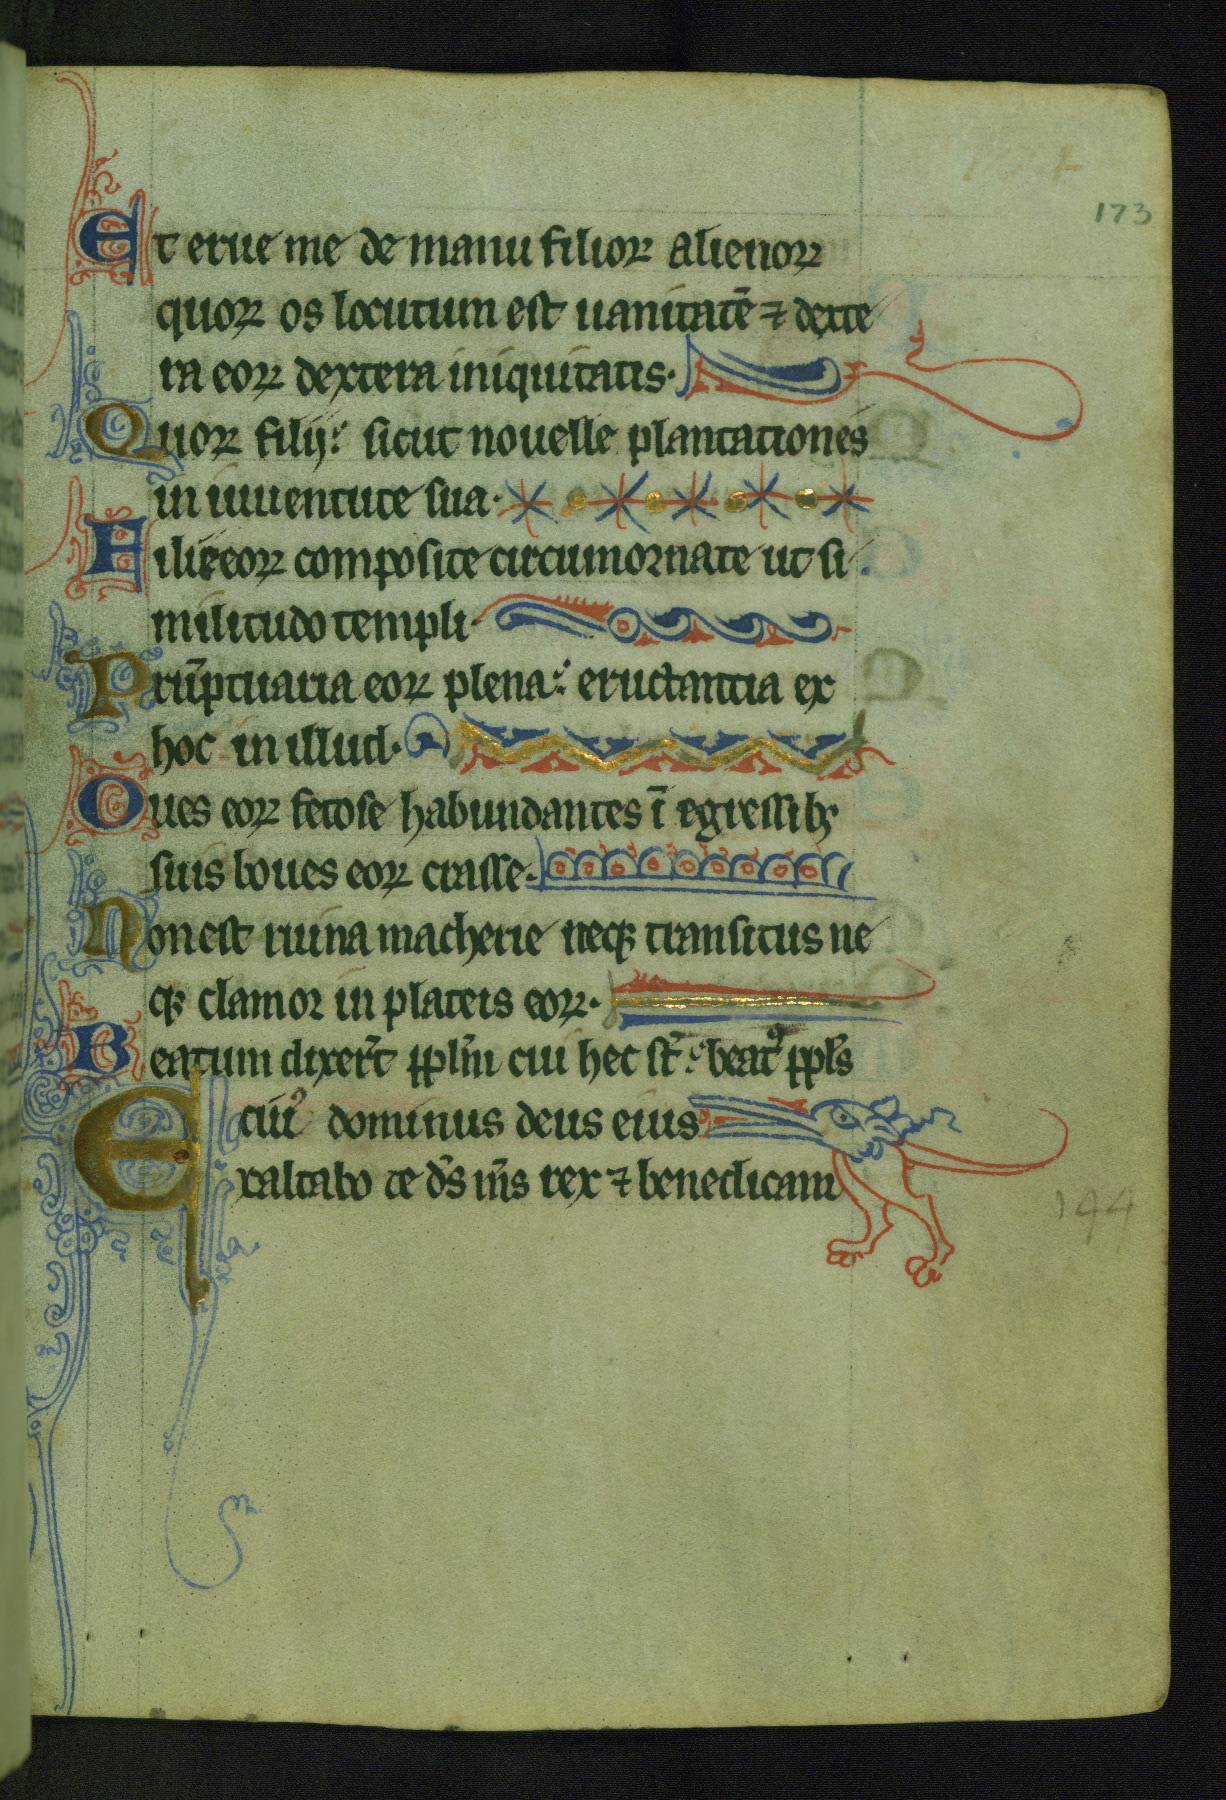 173
Et erue me de manu filioꝝ alienoꝝ
quoꝝ os locutum est uanitatē ⁊ dexte
ra eoꝝ dextera iniquitatis·
Quoꝝ filij: sicut nouelle plantationes
in iuuentute sua·
Filie eoꝝ composite circumornate ut si
militudo templi·
Prūptuaria eoꝝ plena: eructantia ex
hoc in illud·
Oues eoꝝ fetose habundantes ī egressibꝫ
suis boues eoꝝ crasse·
Non est ruina macherie neqꝫ transitus ne
qꝫ clamor in plateis eoꝝ·
Beatum dixer̄t pplm̄ cui hec st̄: beatꝰ ppl̄s
cuiꝰ dominus deus eius
Exaltabo te ds̄ ms̄ rex ⁊ benedicam
144